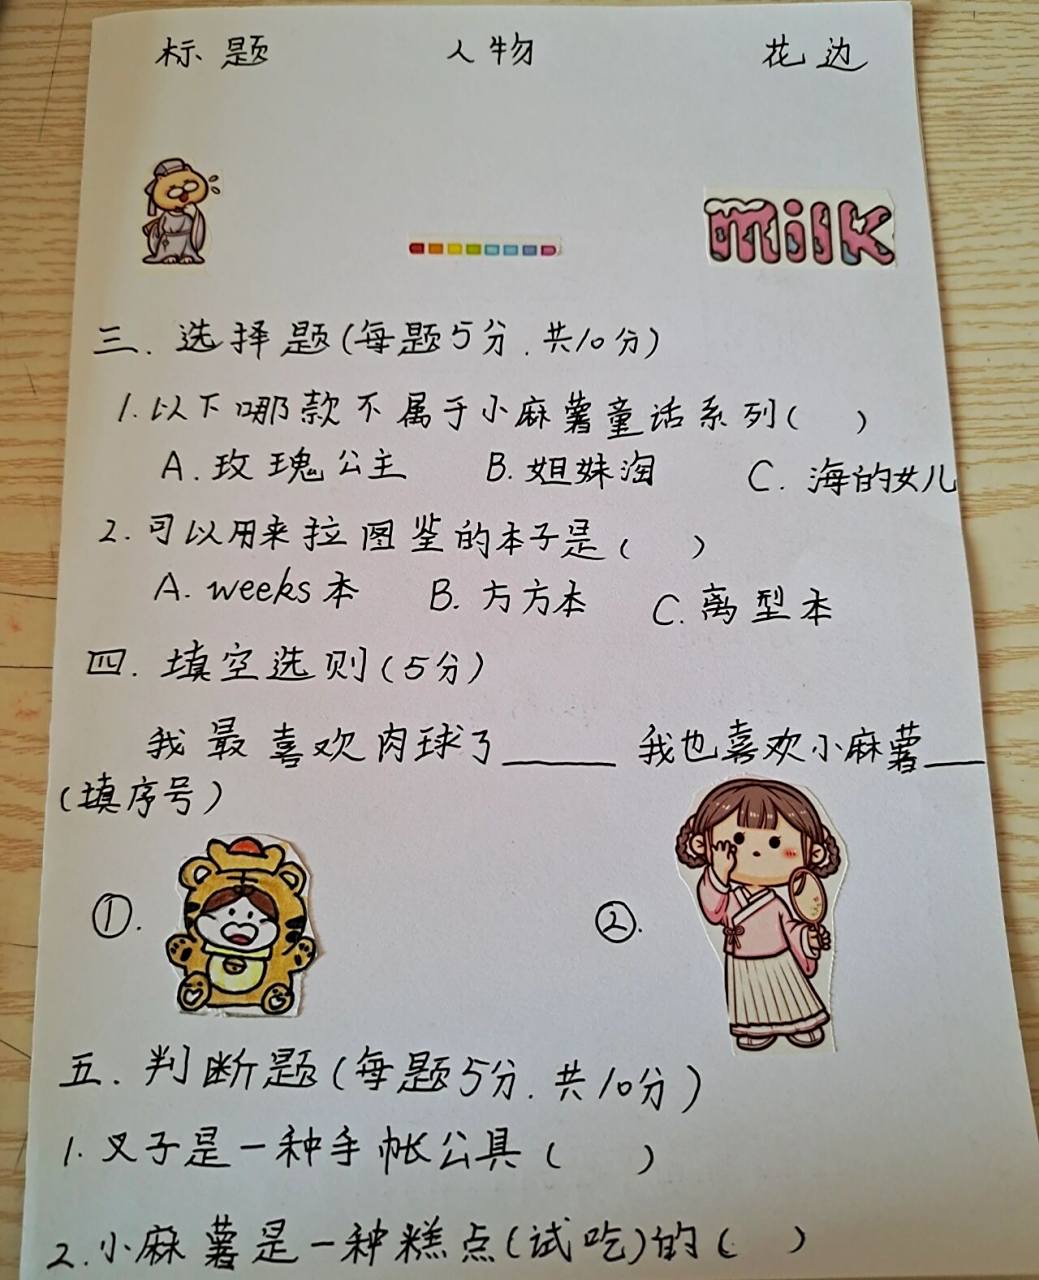 标题 人物 花边
milk
三.选择题(每题5分.共10分)
1.以下哪款不属于小麻薯童话系列( )
A.玫瑰公主 B.姐妹淘 C.海的女儿
2.可以用来拉图鉴的本子是( )
A.weeks本 B.方方本 C.离型本
四.填空选则(5分)
我最喜欢肉球了____ 我也喜欢小麻薯__
(填序号)
①. ②.
五.判断题(每题5分.共10分)
1.叉子是一种手帐公具( )
2.小麻薯是一种糕点(试吃)的( )